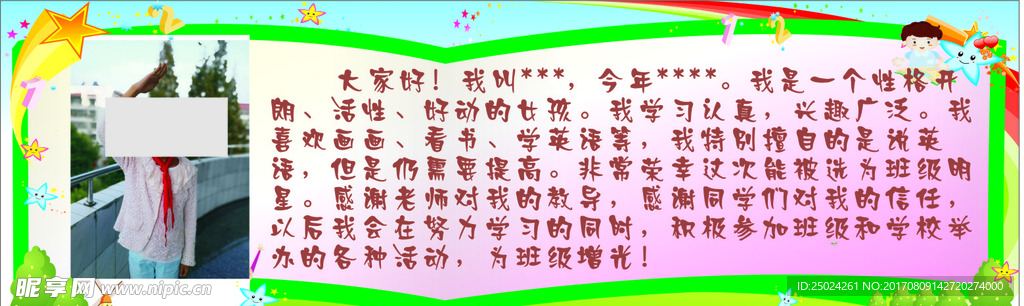 大家好！我叫***，今年****。我是一个性格开
朗、活性、好动的女孩。我学习认真，兴趣广泛。我
喜欢画画、看书、学英语等，我特别擅自的是说英
语，但是仍需要提高。非常荣幸这次能被选为班级明
星。感谢老师对我的教导，感谢同学们对我的信任，
以后我会在努力学习的同时，积极参加班级和学校举
办的各种活动，为班级增光！
昵享网 www.nipic.cn
ID:25024261 NO:20170809142720274000